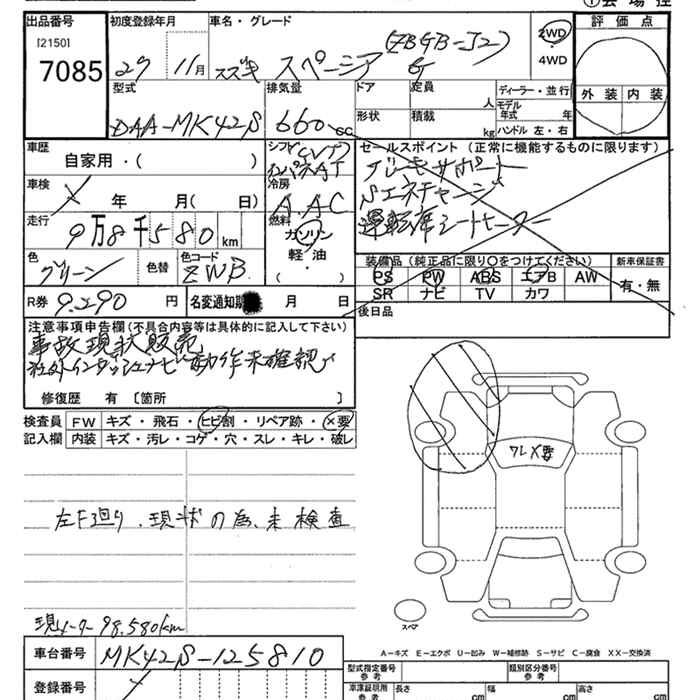 会場控
出品番号 初度登録年月 車名・グレード 評価点
[2150] 7085 27 11月 スズキ スペーシア G (ZBGB-J2) 2WD・4WD
型式 排気量 ドア 定員 人 ディーラー・並行
外装 内装
DAA-MK42S 660cc 形状 積載 kg モデル年式 年
ハンドル 左・右
車歴 シフト セールスポイント(正常に機能するものに限ります)
自家用・( ) CVT
車検 年 月( 日) 冷房 AAC
Sエネチャージ
運転席シートヒーター
走行 9万8千580km 燃料 ガソリン・軽油・( )
色 色替 色コード
グリーン ZWB
装備品(純正品に限り○をつけてください) 新車保証書
PS PW ABS エアB AW 有・無
SR ナビ TV カワ
R券 9.290円 名変通知期限 月 日 後日品
注意事項申告欄(不具合内容等は具体的に記入して下さい)
事故現状販売
社外インダッシュナビ動作未確認
修復歴 有 [箇所 ]
検査員記入欄 FW キズ・飛石・ヒビ割・リペア跡・×要
内装 キズ・汚レ・コゲ・穴・スレ・キレ・破レ
ワレX要
左F廻り、現状の為、未検査
スペア
現メーター 98.580km
A-キズ E-エクボ U-凹み W-補修跡 S-サビ C-腐食 XX-交換済
車台番号 MK42S-125810
型式指定番号 参考 類別区分番号 参考
登録番号 車庫証明用 参考 長さ cm 幅 cm 高さ cm